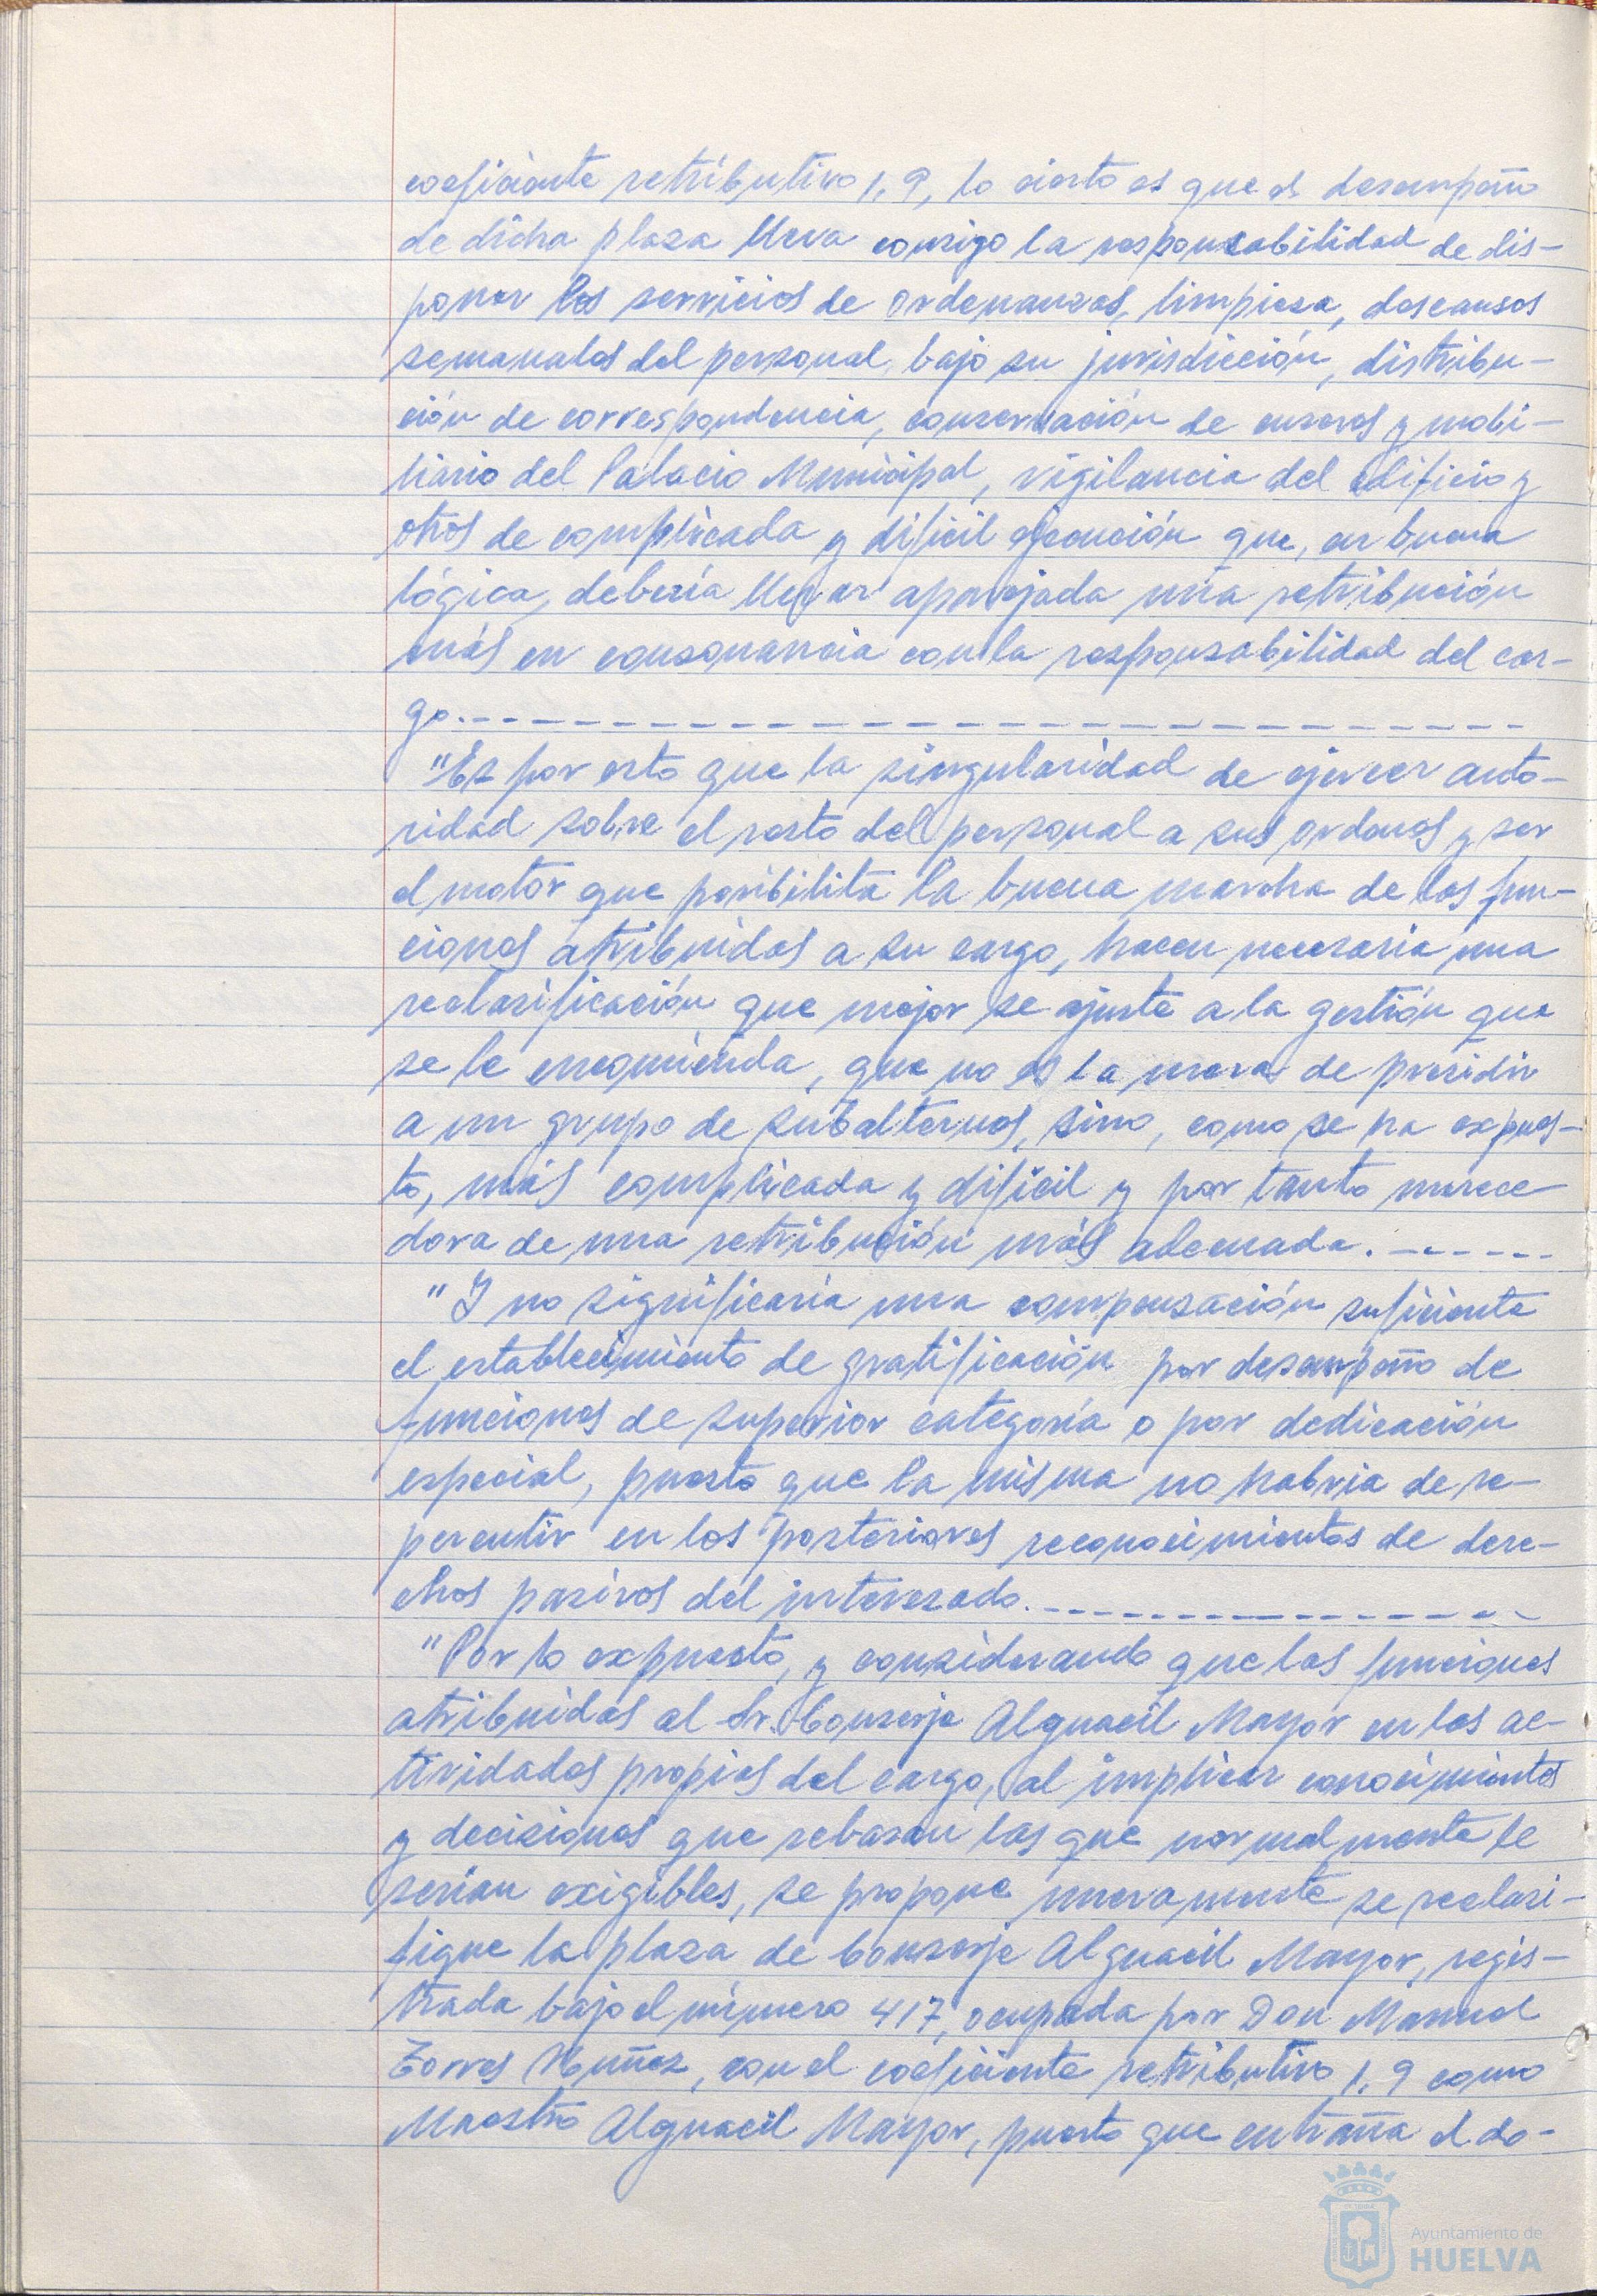 coeficiente retributivo 1,9, lo cierto es que el desempeño
de dicha plaza lleva consigo la responsabilidad de dis-
poner los servicios de ordenanzas, limpieza, descansos
semanales del personal bajo su jurisdicción, distribu-
ción de correspondencia, conservación de enseres y mobi-
liario del Palacio Municipal, vigilancia del edificio y
otros de complicada y difícil ejecución que, en buena
lógica, debería llevar aparejada una retribución
más en consonancia con la responsabilidad del car-
go.
"Es por esto que la singularidad de ejercer auto-
ridad sobre el resto del personal a sus ordenes y ser
el motor que posibilita la buena marcha de las fun-
ciones atribuidas a su cargo, hacen necesaria una
reclasificación que mejor se ajuste a la gestión que
se le encomienda, que no es la mera de presidir
a un grupo de subalternos, sino, como se ha expues-
to, más complicada y difícil y por tanto merece-
dora de una retribución más adecuada.
"Y no significaría una compensación suficiente
el establecimiento de gratificación por desempeño de
funciones de superior categoría o por dedicación
especial, puesto que la misma no habria de re-
percutir en los posteriores reconocimientos de dere-
chos pasivos del interesado.
"Por lo expuesto, y considerando que las funciones
atribuidas al Sr. Conserje Alguacil Mayor en las ac-
tividades propias del cargo, al implicar conocimientos
y decisiones que rebasan las que normalmente le
serían exigibles, se propone nuevamente se reclasi-
fique la plaza de Conserje Alguacil Mayor, regis-
trada bajo el número 417, ocupada por Don Manuel
Torres Nuñez, con el coeficiente retributivo 1,9 como
Maestro Alguacil Mayor, puesto que entraña el de-
Ayuntamiento de
HUELVA